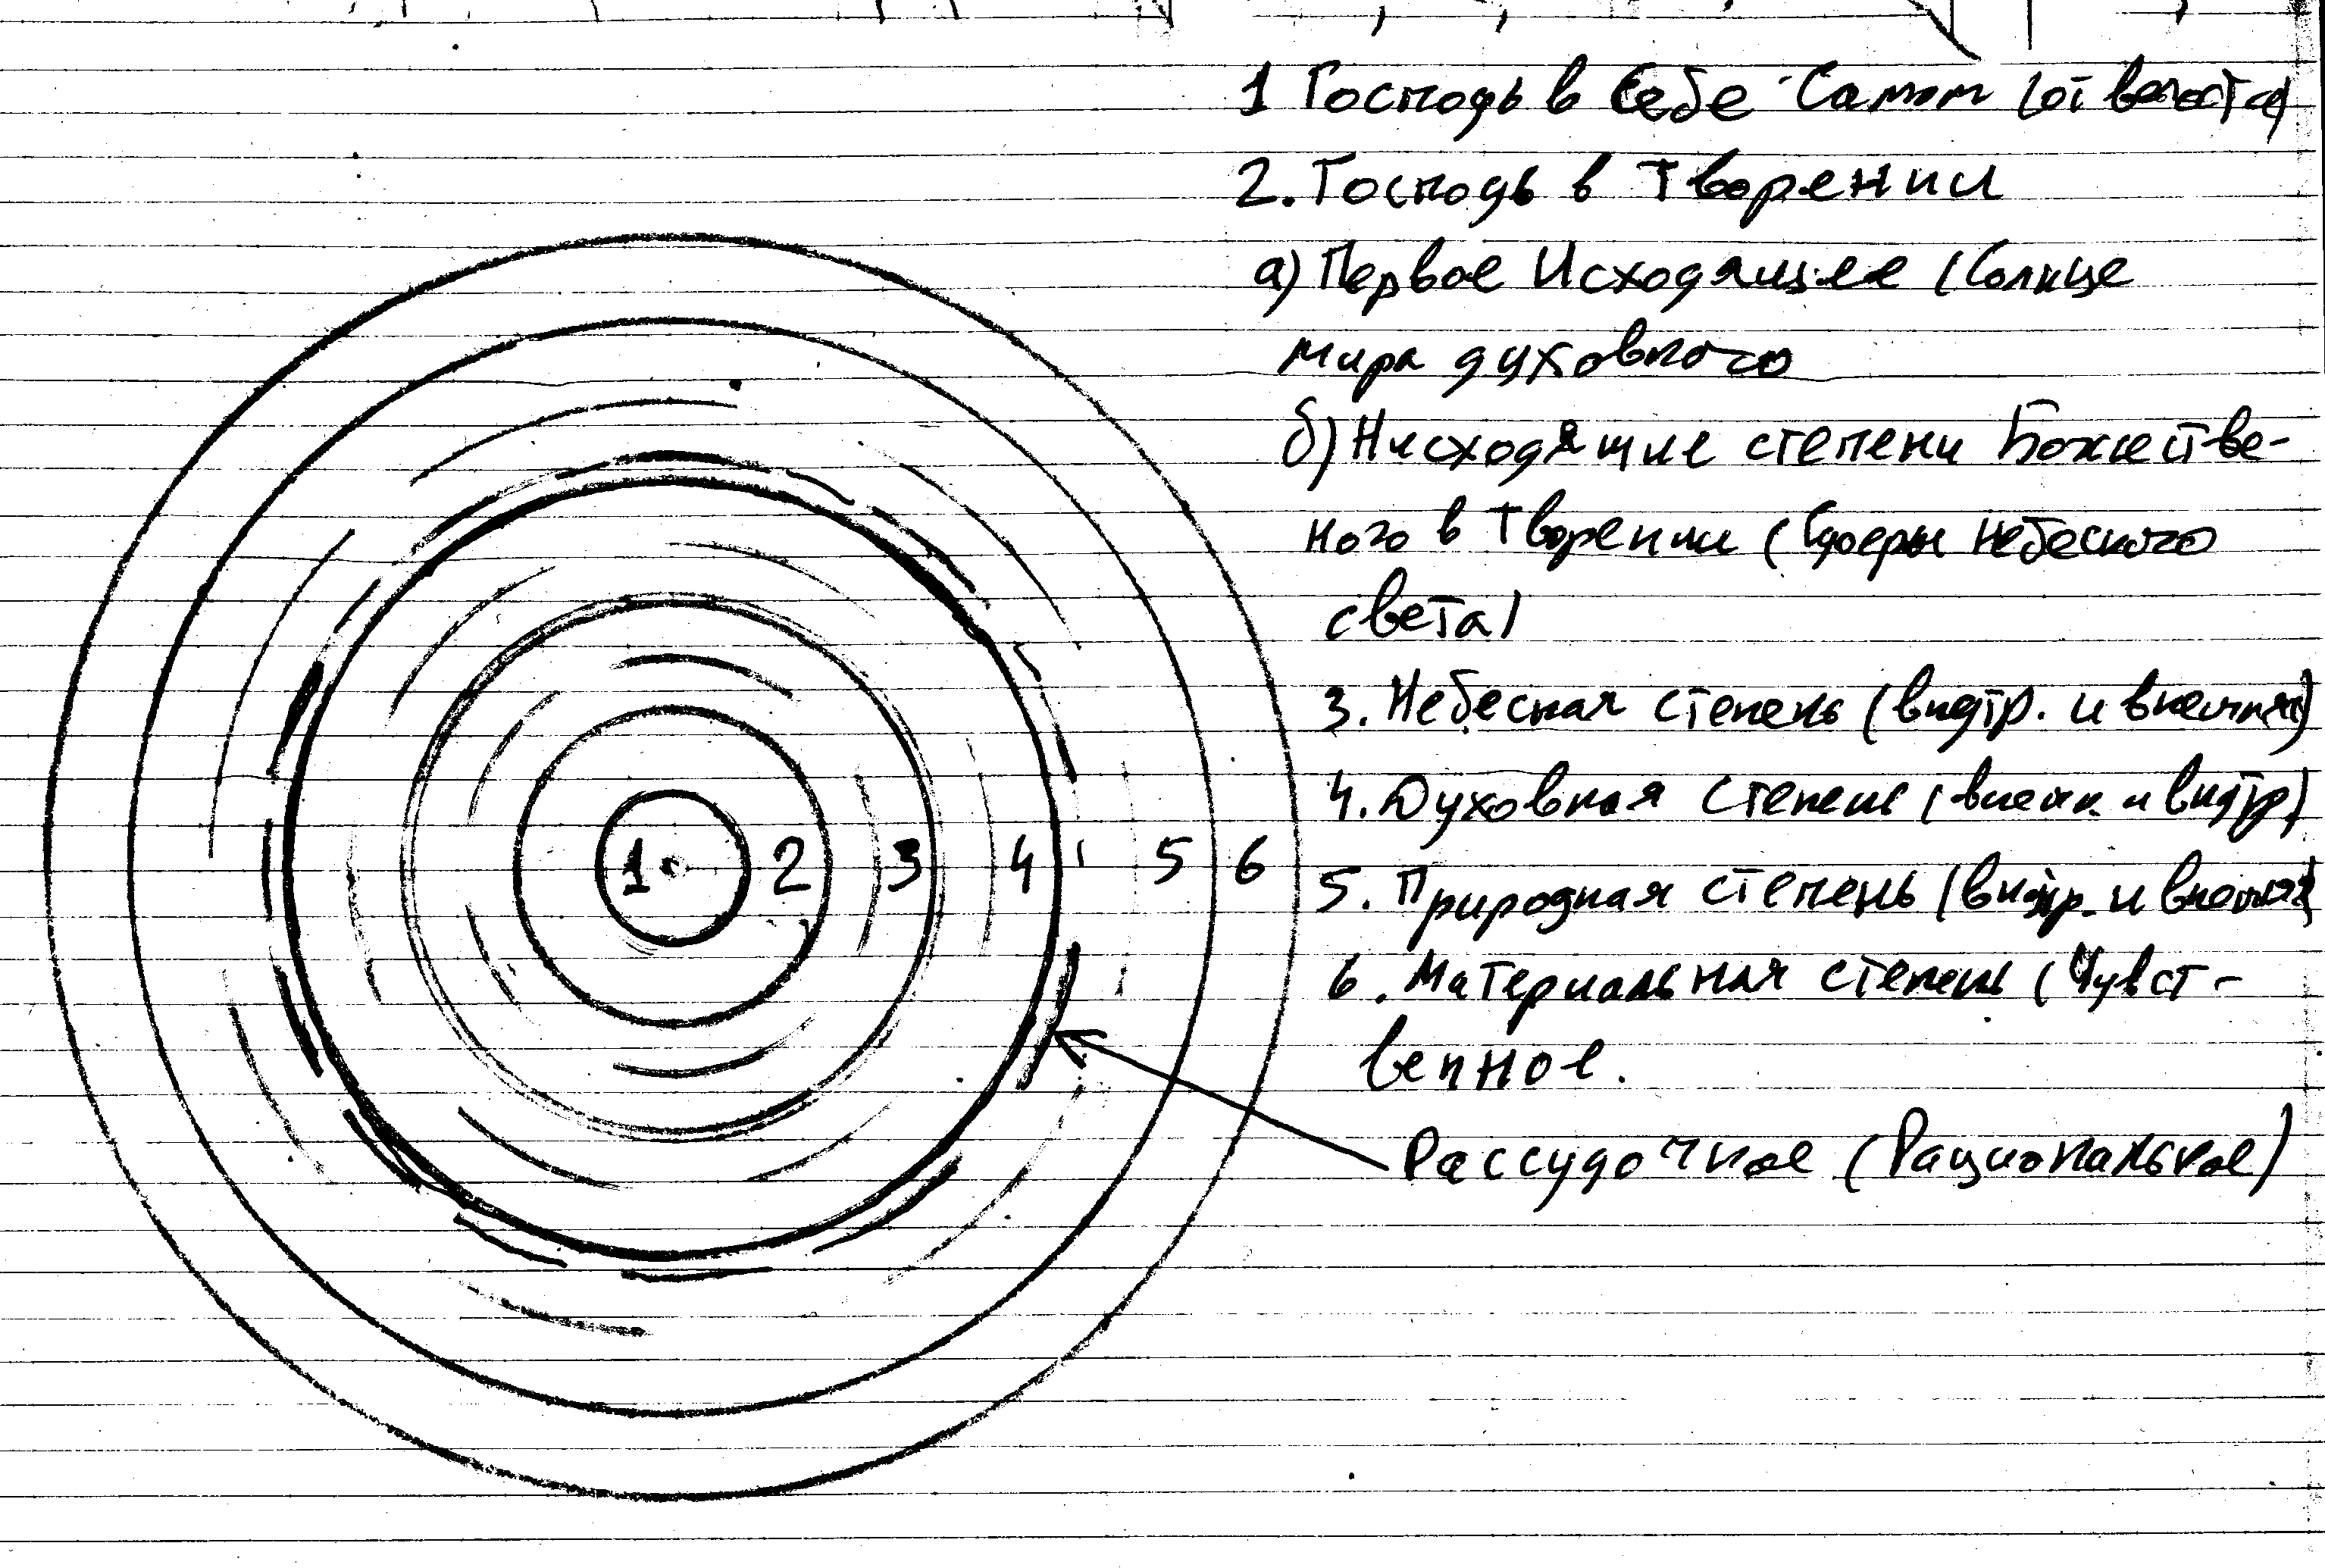 1 Господь в Себе Самом (от вечности)
2. Господь в Творении
а) Первое Исходящее (Солнце
мира духовного
б) Нисходящие степени Божестве-
ного в Творении (Сферы небесного
света)
3. Небесная степень (внутр. и внешняя)
4. Духовная степень (внешн и внутр)
5. Природная степень (внутр. и внешняя)
6. Материальная степень (Чувст-
венное.
Рассудочное (Рациональное)
1 2 3 4 5 6